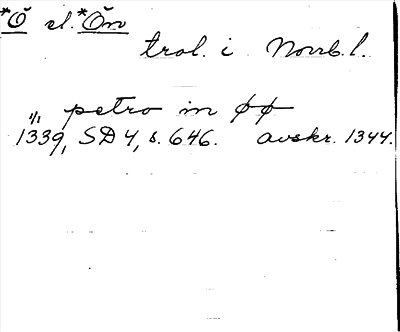 *Ö el. *Ön
trol. i Norrb. l.
petro in øø
1/1 1339, SD 4, s. 646. avskr. 1344.